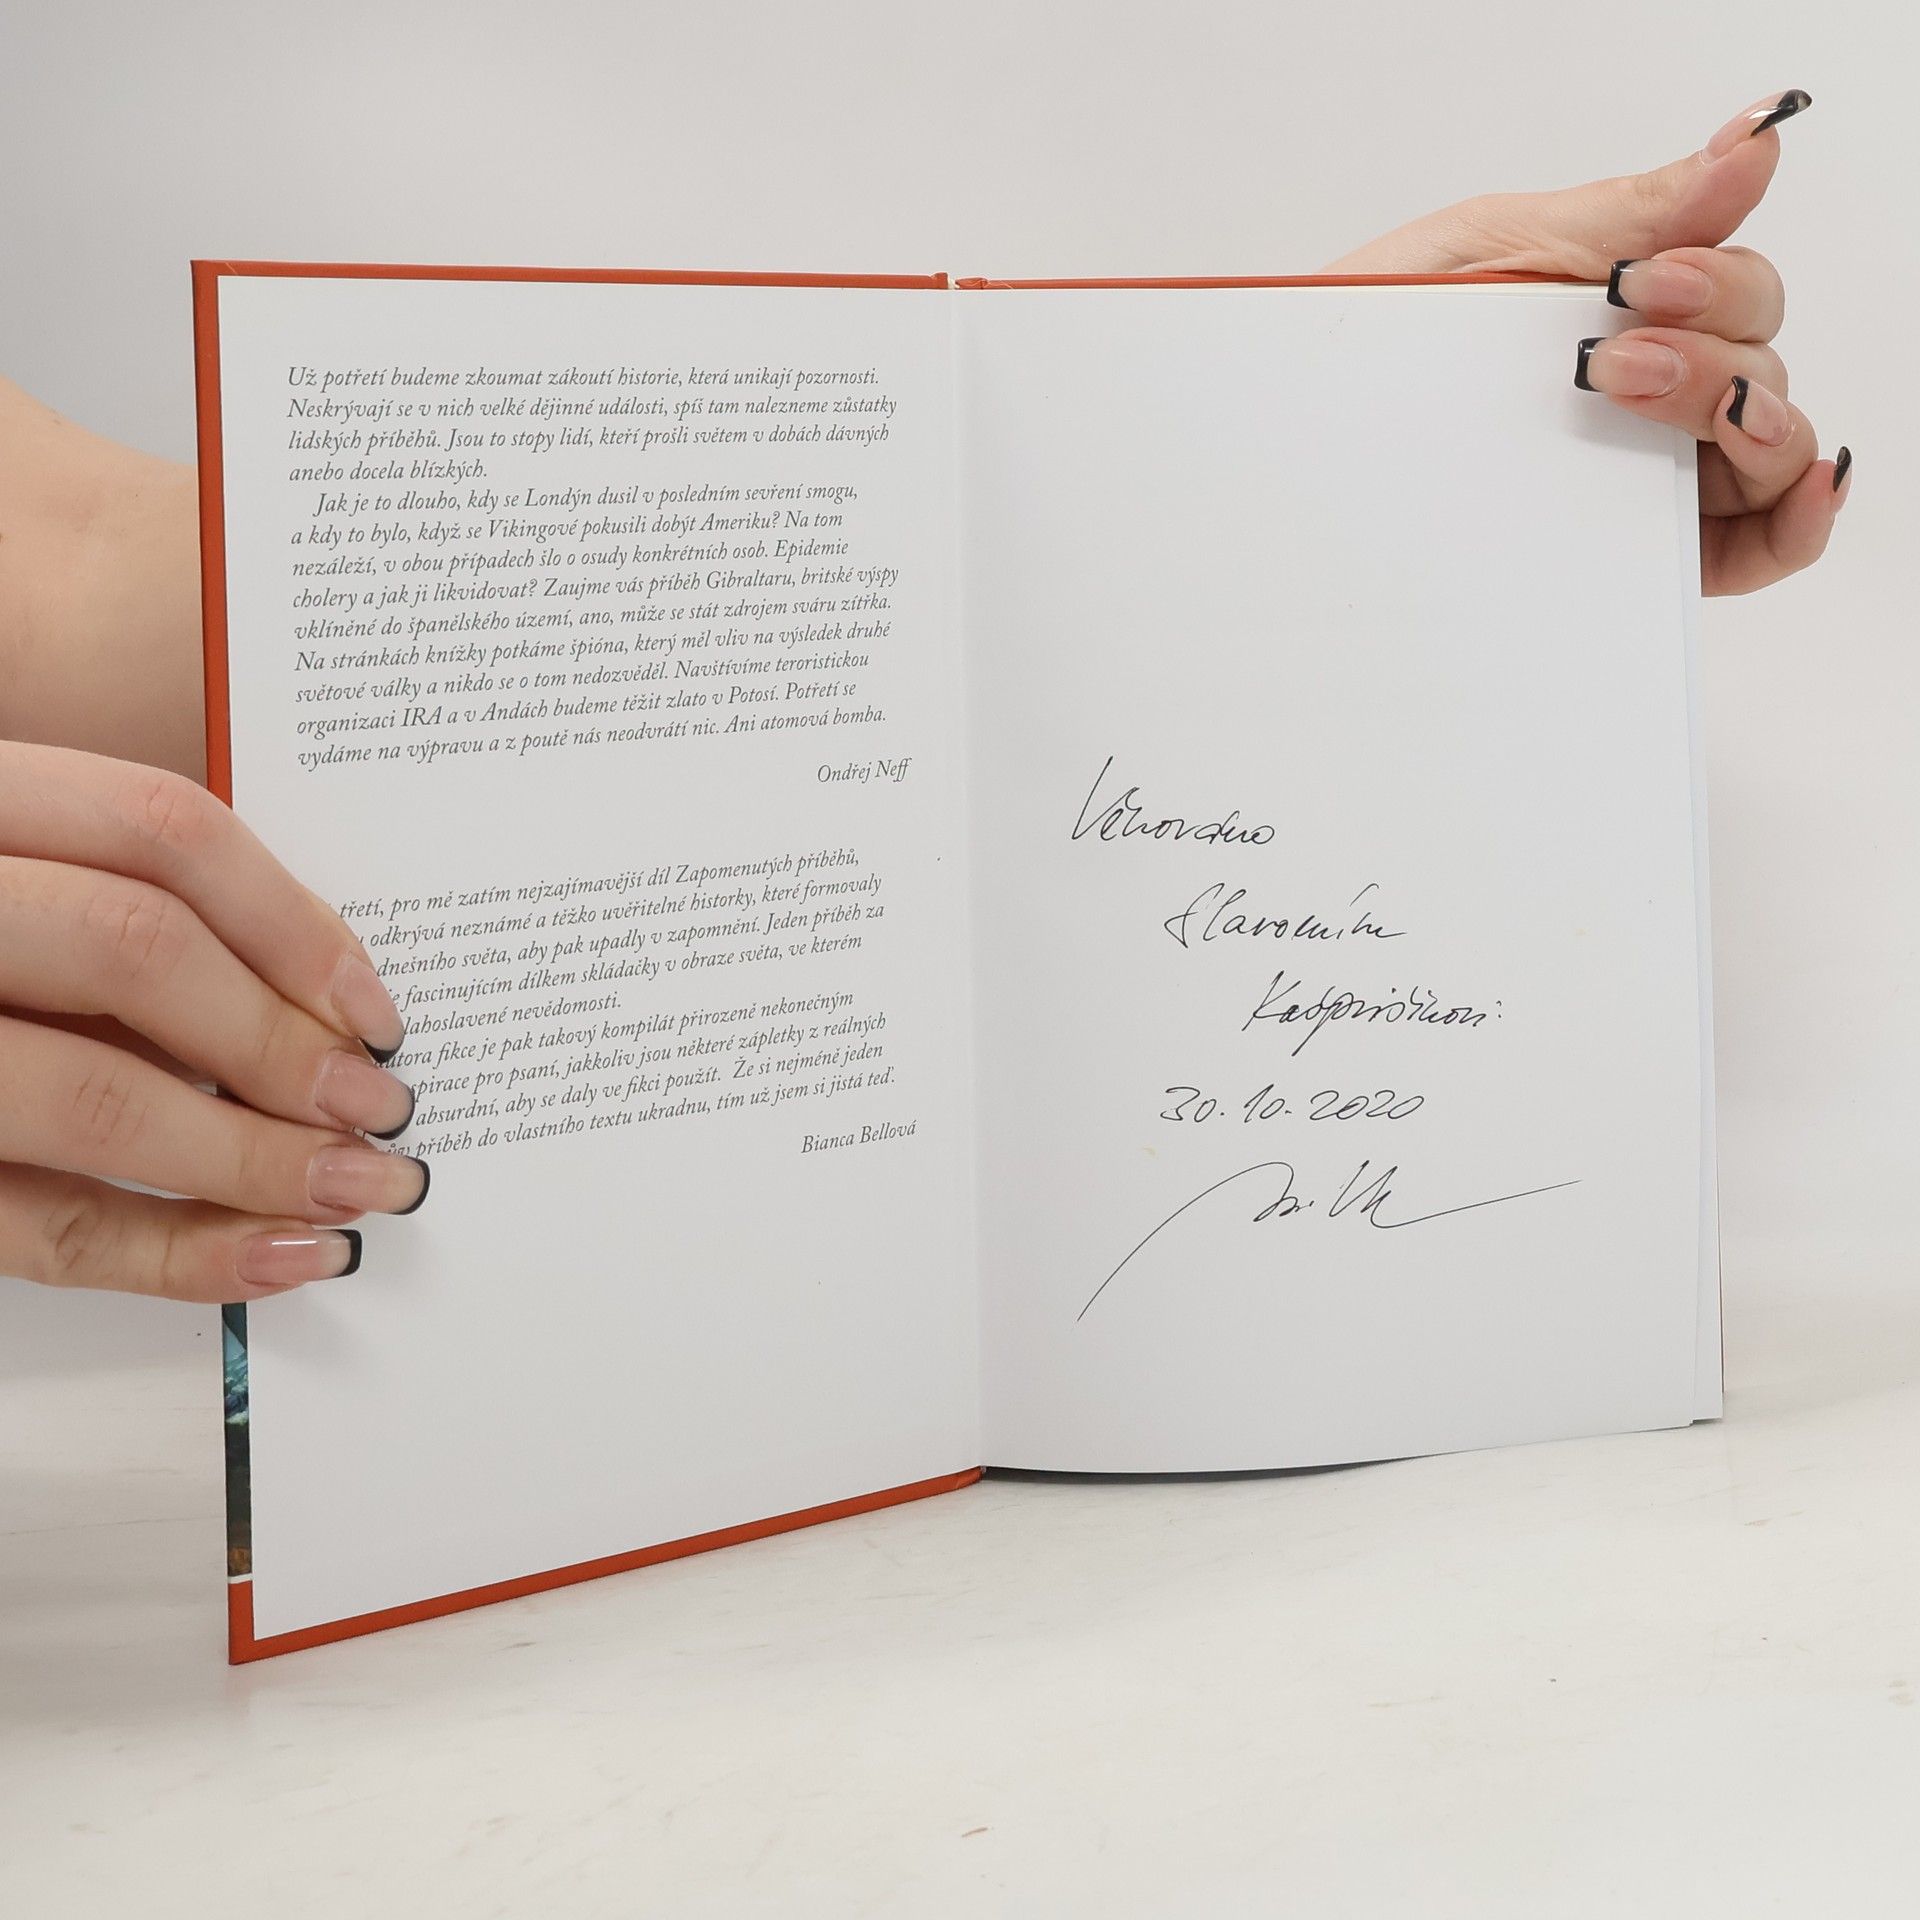 Už potřetí budeme zkoumat zákoutí historie, která unikají pozornosti.
Neskrývají se v nich velké dějinné události, spíš tam nalezneme zůstatky
lidských příběhů. Jsou to stopy lidí, kteří prošli světem v dobách dávných
anebo docela blízkých.
Jak je to dlouho, kdy se Londýn dusil v posledním sevření smogu,
a kdy to bylo, když se Vikingové pokusili dobýt Ameriku? Na tom
nezáleží, v obou případech šlo o osudy konkrétních osob. Epidemie
cholery a jak ji likvidovat? Zaujme vás příběh Gibraltaru, britské výspy
vklíněné do španělského území, ano, může se stát zdrojem sváru zítřka.
Na stránkách knížky potkáme špióna, který měl vliv na výsledek druhé
světové války a nikdo se o tom nedozvěděl. Navštívíme teroristickou
organizaci IRA a v Andách budeme těžit zlato v Potosí. Potřetí se
vydáme na výpravu a z poutě nás neodvrátí nic. Ani atomová bomba.
Ondřej Neff
třetí, pro mě zatím nejzajímavější díl Zapomenutých příběhů,
odkrývá neznámé a těžko uvěřitelné historky, které formovaly
dnešního světa, aby pak upadly v zapomnění. Jeden příběh za
je fascinujícím dílkem skládačky v obraze světa, ve kterém
lahoslavené nevědomosti.
autora fikce je pak takový kompilát přirozeně nekonečným
spirace pro psaní, jakkoliv jsou některé zápletky z reálných
absurdní, aby se daly ve fikci použít. Že si nejméně jeden
příběh do vlastního textu ukradnu, tím už jsem si jistá teď.
Bianca Bellová
Věnováno
30. 10. 2020